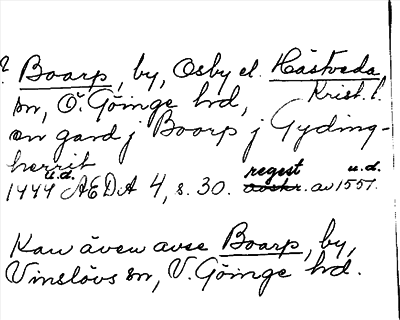 ? Boarp, by, Osby el. Hästveda
sn, Ö. Göinge hd, Krist. l.
en gard j Boarp j Gyding-
herrit
1444 u.d. AEDA 4, s. 30. regest avskr. av 1551. u.d.
Kan även avse Boarp, by,
Vinslövs sn, V. Göinge hd.